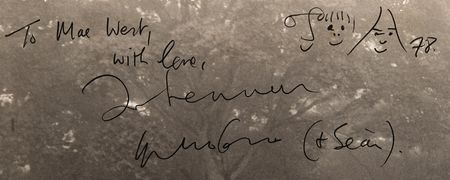 To Mae West,
78.
with love,
John Lennon
Yoko Ono (+ Seán).